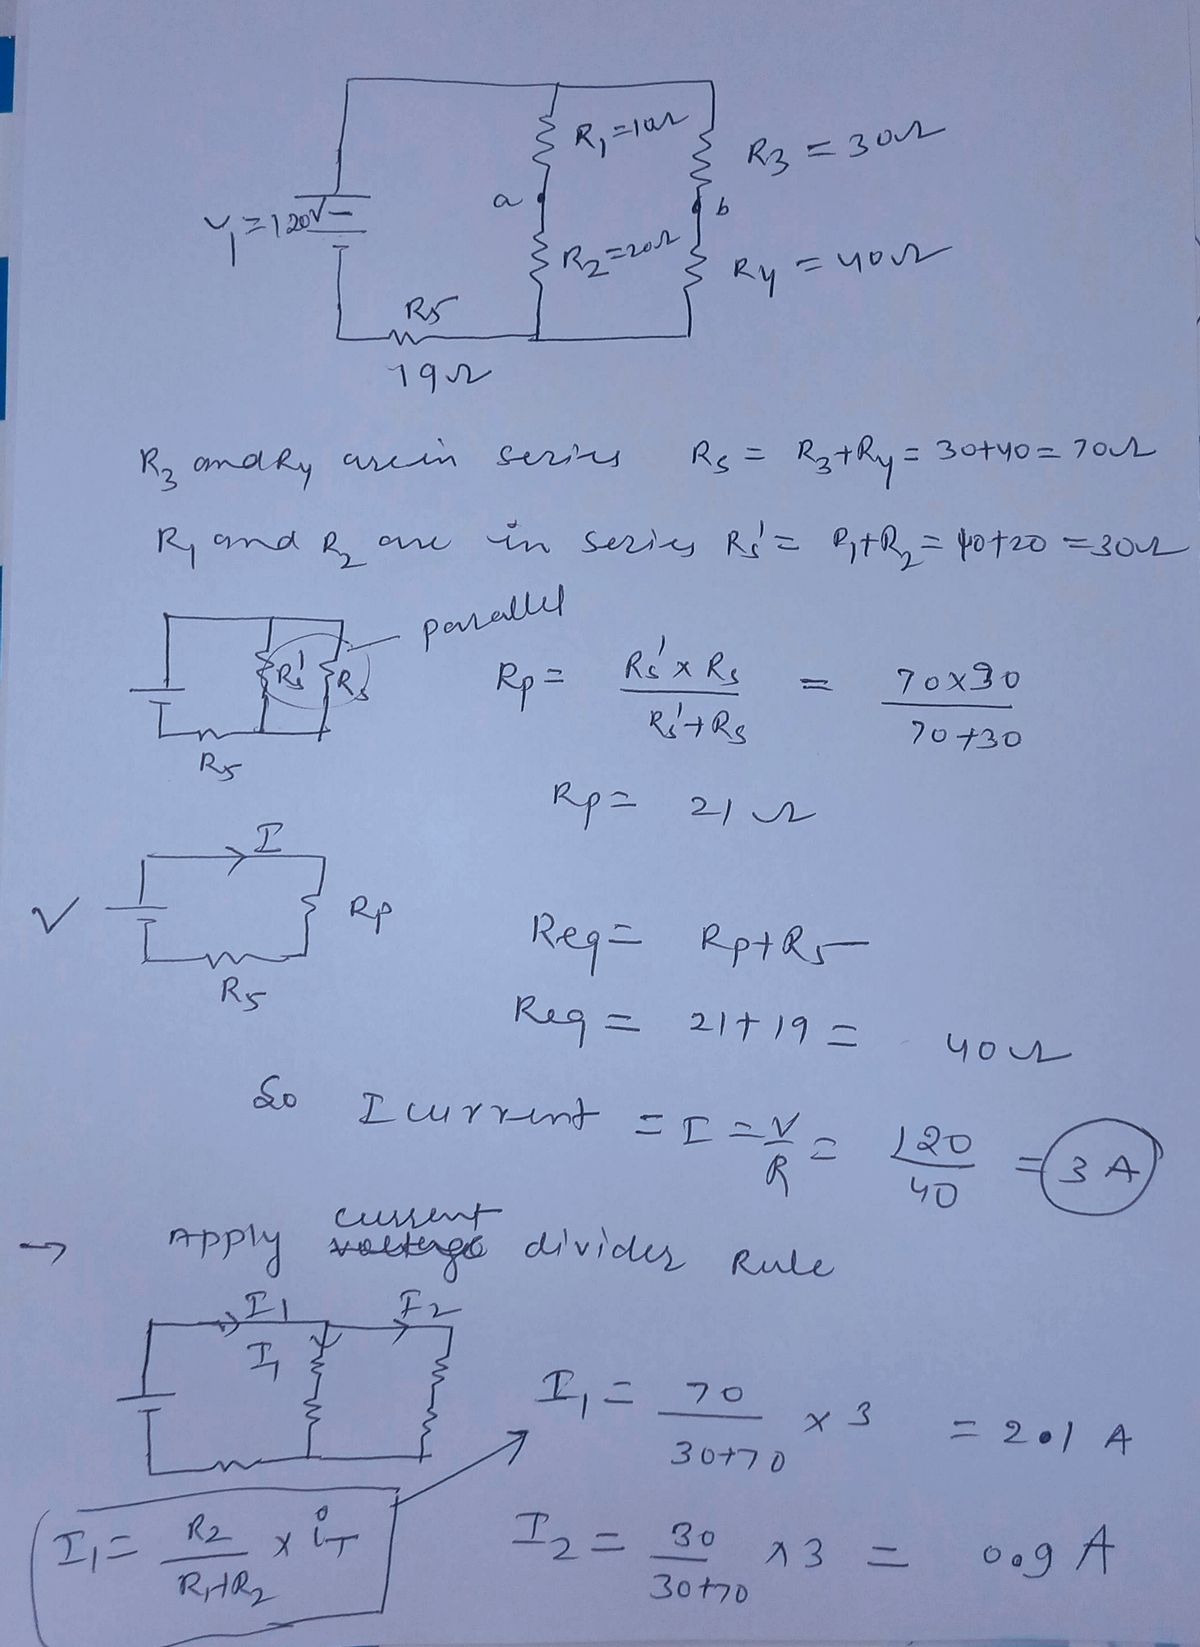 R1 = 10Ω
R3 = 30Ω
a
b
V1 = 120V
R2 = 20Ω
R4 = 40Ω
R5
19Ω
R3 and R4 are in series Rs = R3+R4 = 30+40 = 70Ω
R1 and R2 are in series Rs' = R1+R2 = 10+20 = 30Ω
parallel
Rs' Rs
R5
Rp = Rs' x Rs / Rs'+Rs = 70x30 / 70+30
Rp = 21Ω
I
V
Rp
R5
Req = Rp+R5
Req = 21+19 = 40Ω
So I current = I = V/R = 120/40 = 3 A
→ Apply current divider Rule
I1 I2
I1
I1 = 70 / 30+70 x 3 = 2.1 A
I1 = R2 / R1+R2 x iT
I2 = 30 / 30+70 x 3 = 0.9 A